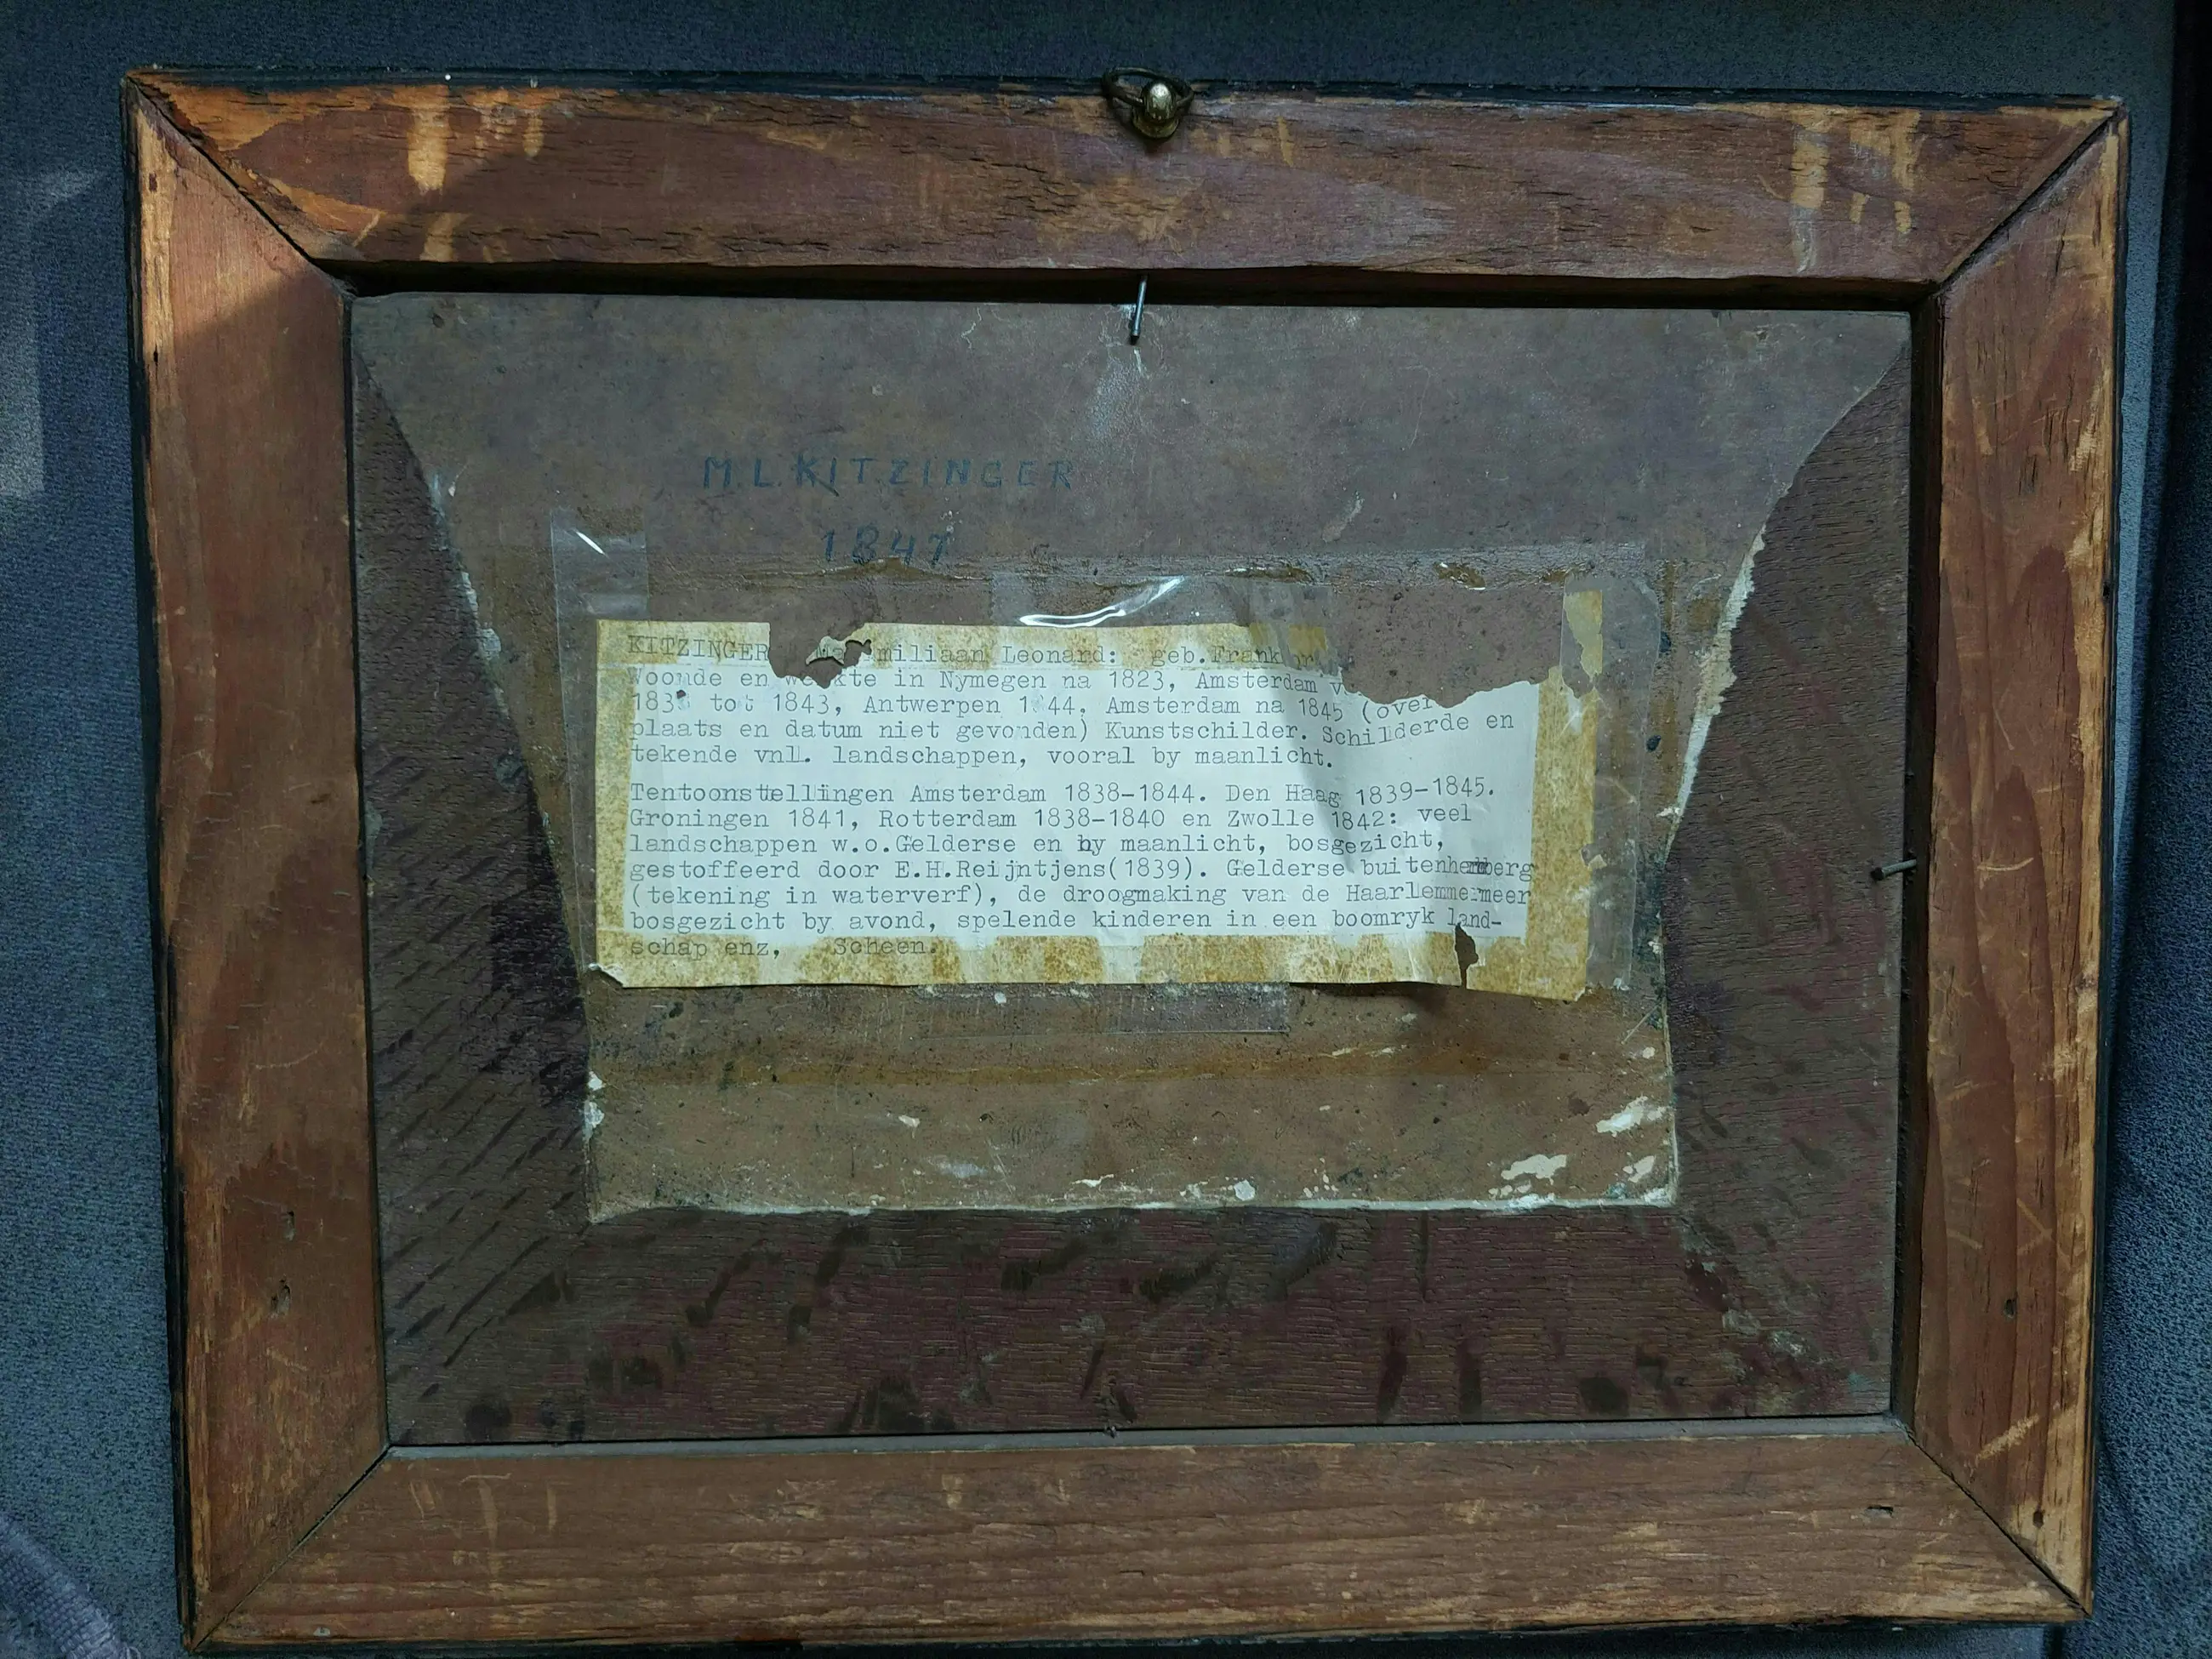 M.L.KITZINGER
1847
KITZINGER miliaan Leonard: geb.Frank
Woonde en werkte in Nymegen na 1823, Amsterdam
tot 1843, Antwerpen Amsterdam na 1845 (over
plaats en datum niet gevonden) Kunstschilder. Schilderde en
tekende vnl. landschappen, vooral by maanlicht.
Tentoonstellingen Amsterdam 1838-1844. Den Haag 1839-1845.
Groningen 1841, Rotterdam 1838-1840 en Zwolle 1842: veel
landschappen w.o.Gelderse en by maanlicht, bosgezicht,
gestoffeerd door E.H.Reijntjens(1839). Gelderse
(tekening in waterverf), de droogmaking van de Haarlemmermeer
bosgezicht by avond, spelende kinderen in een boomryk land-
schap enz, Scheen.